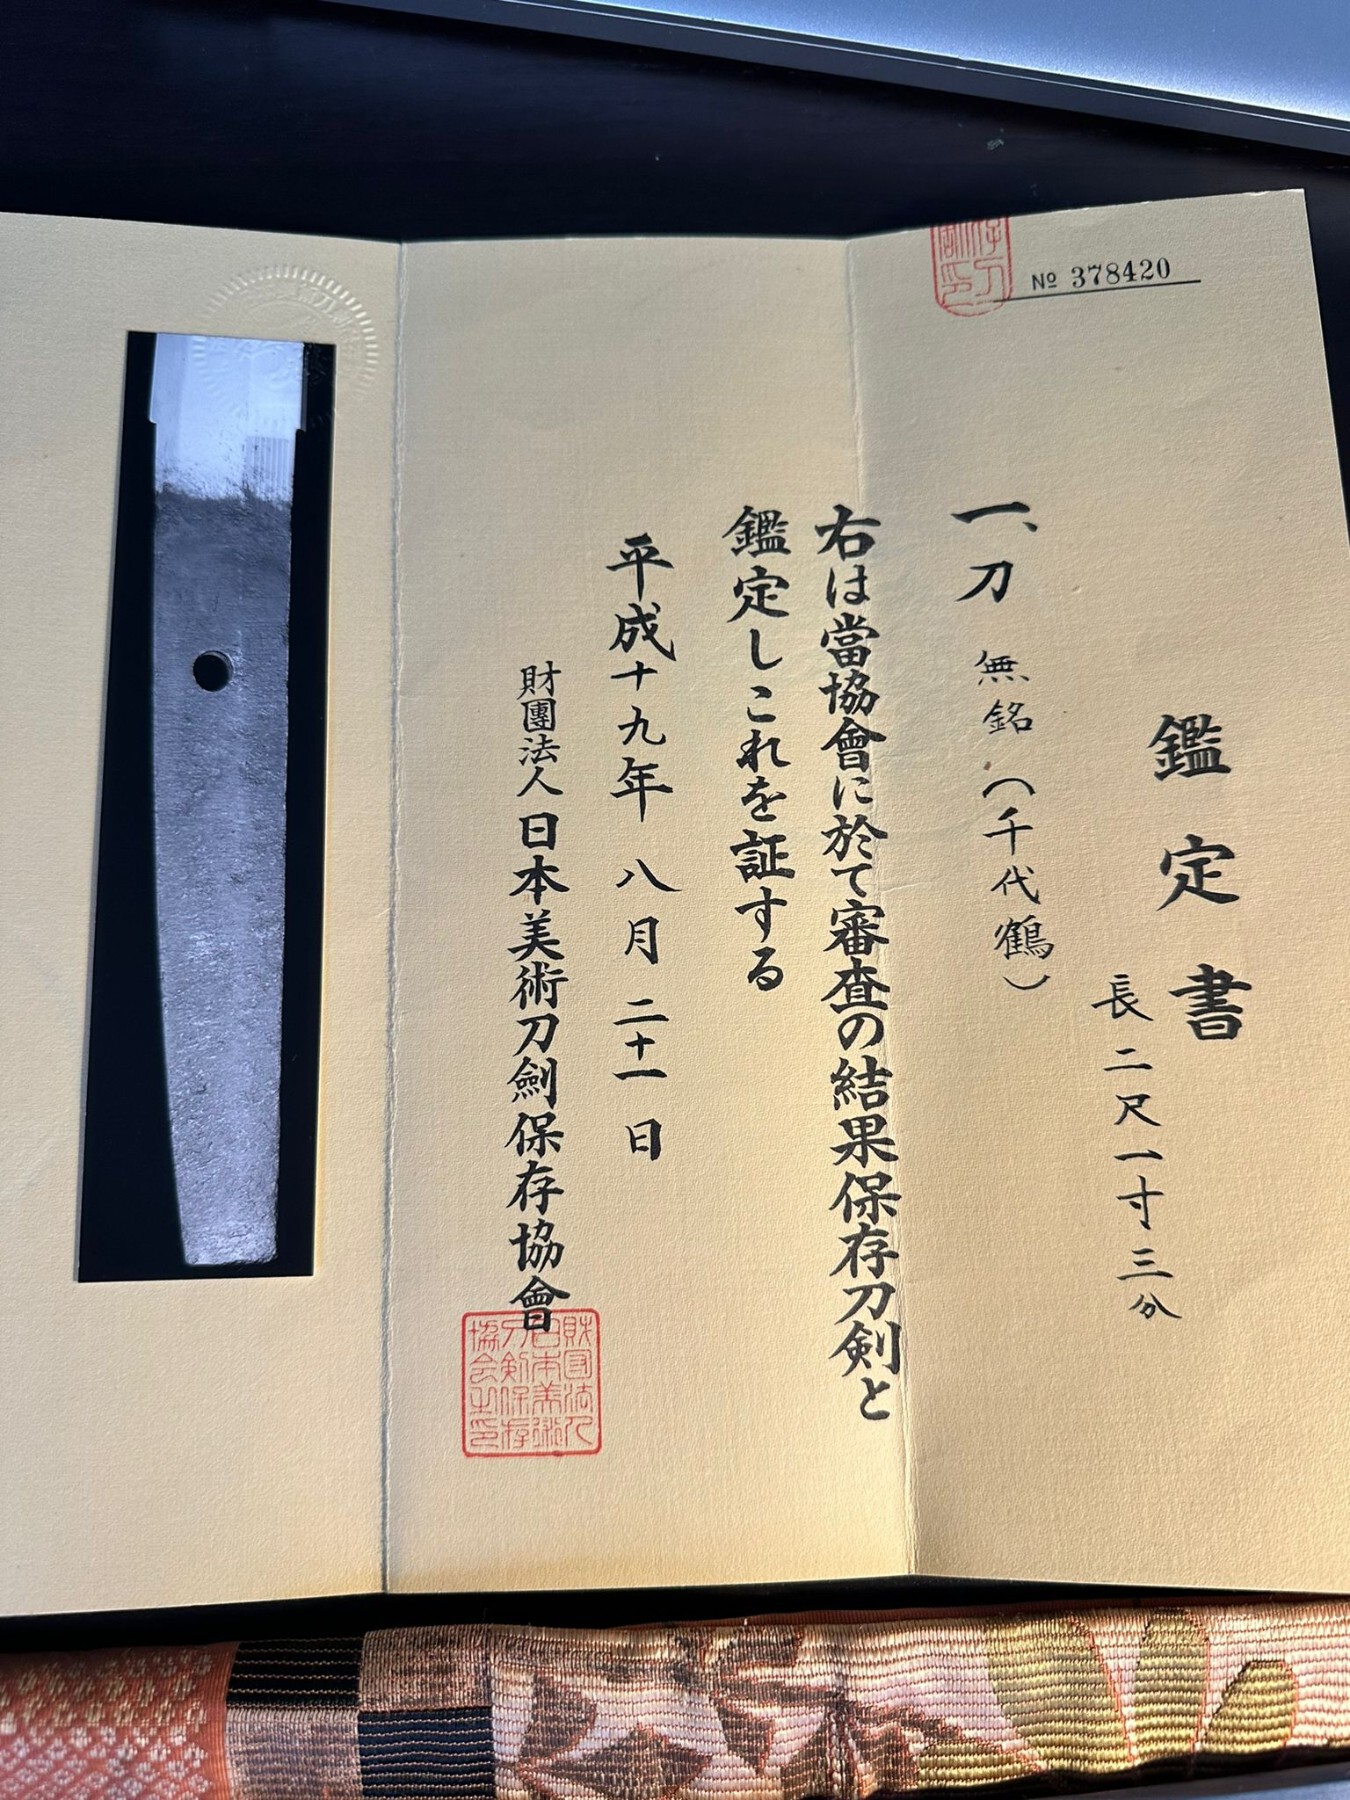 № 378420
鑑定書
一、刀 無銘(千代鶴)
長二尺一寸三分
右は當協會に於て審査の結果保存刀剣と
鑑定しこれを証する
平成十九年八月二十一日
財團法人日本美術刀劍保存協會
財団法人
日本美術
刀剣保存
協会之印